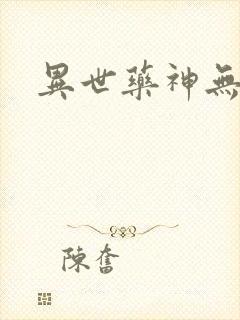 異世藥神無
陳奮